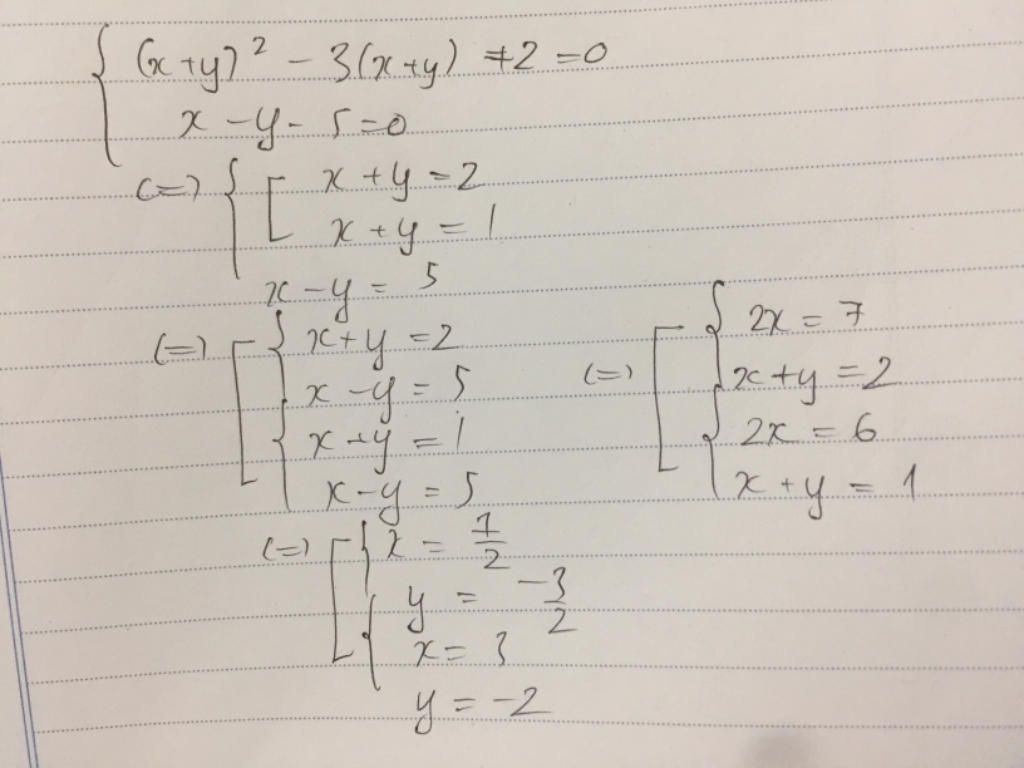 (x+y)² - 3(x+y) +2 = 0
x - y - 5 = 0
(=) x + y = 2
x + y = 1
x - y = 5
(=) x + y = 2
x - y = 5
x + y = 1
x - y = 5
(=) 2x = 7
x + y = 2
2x = 6
x + y = 1
(=) x = 7/2
y = -3/2
x = 3
y = -2